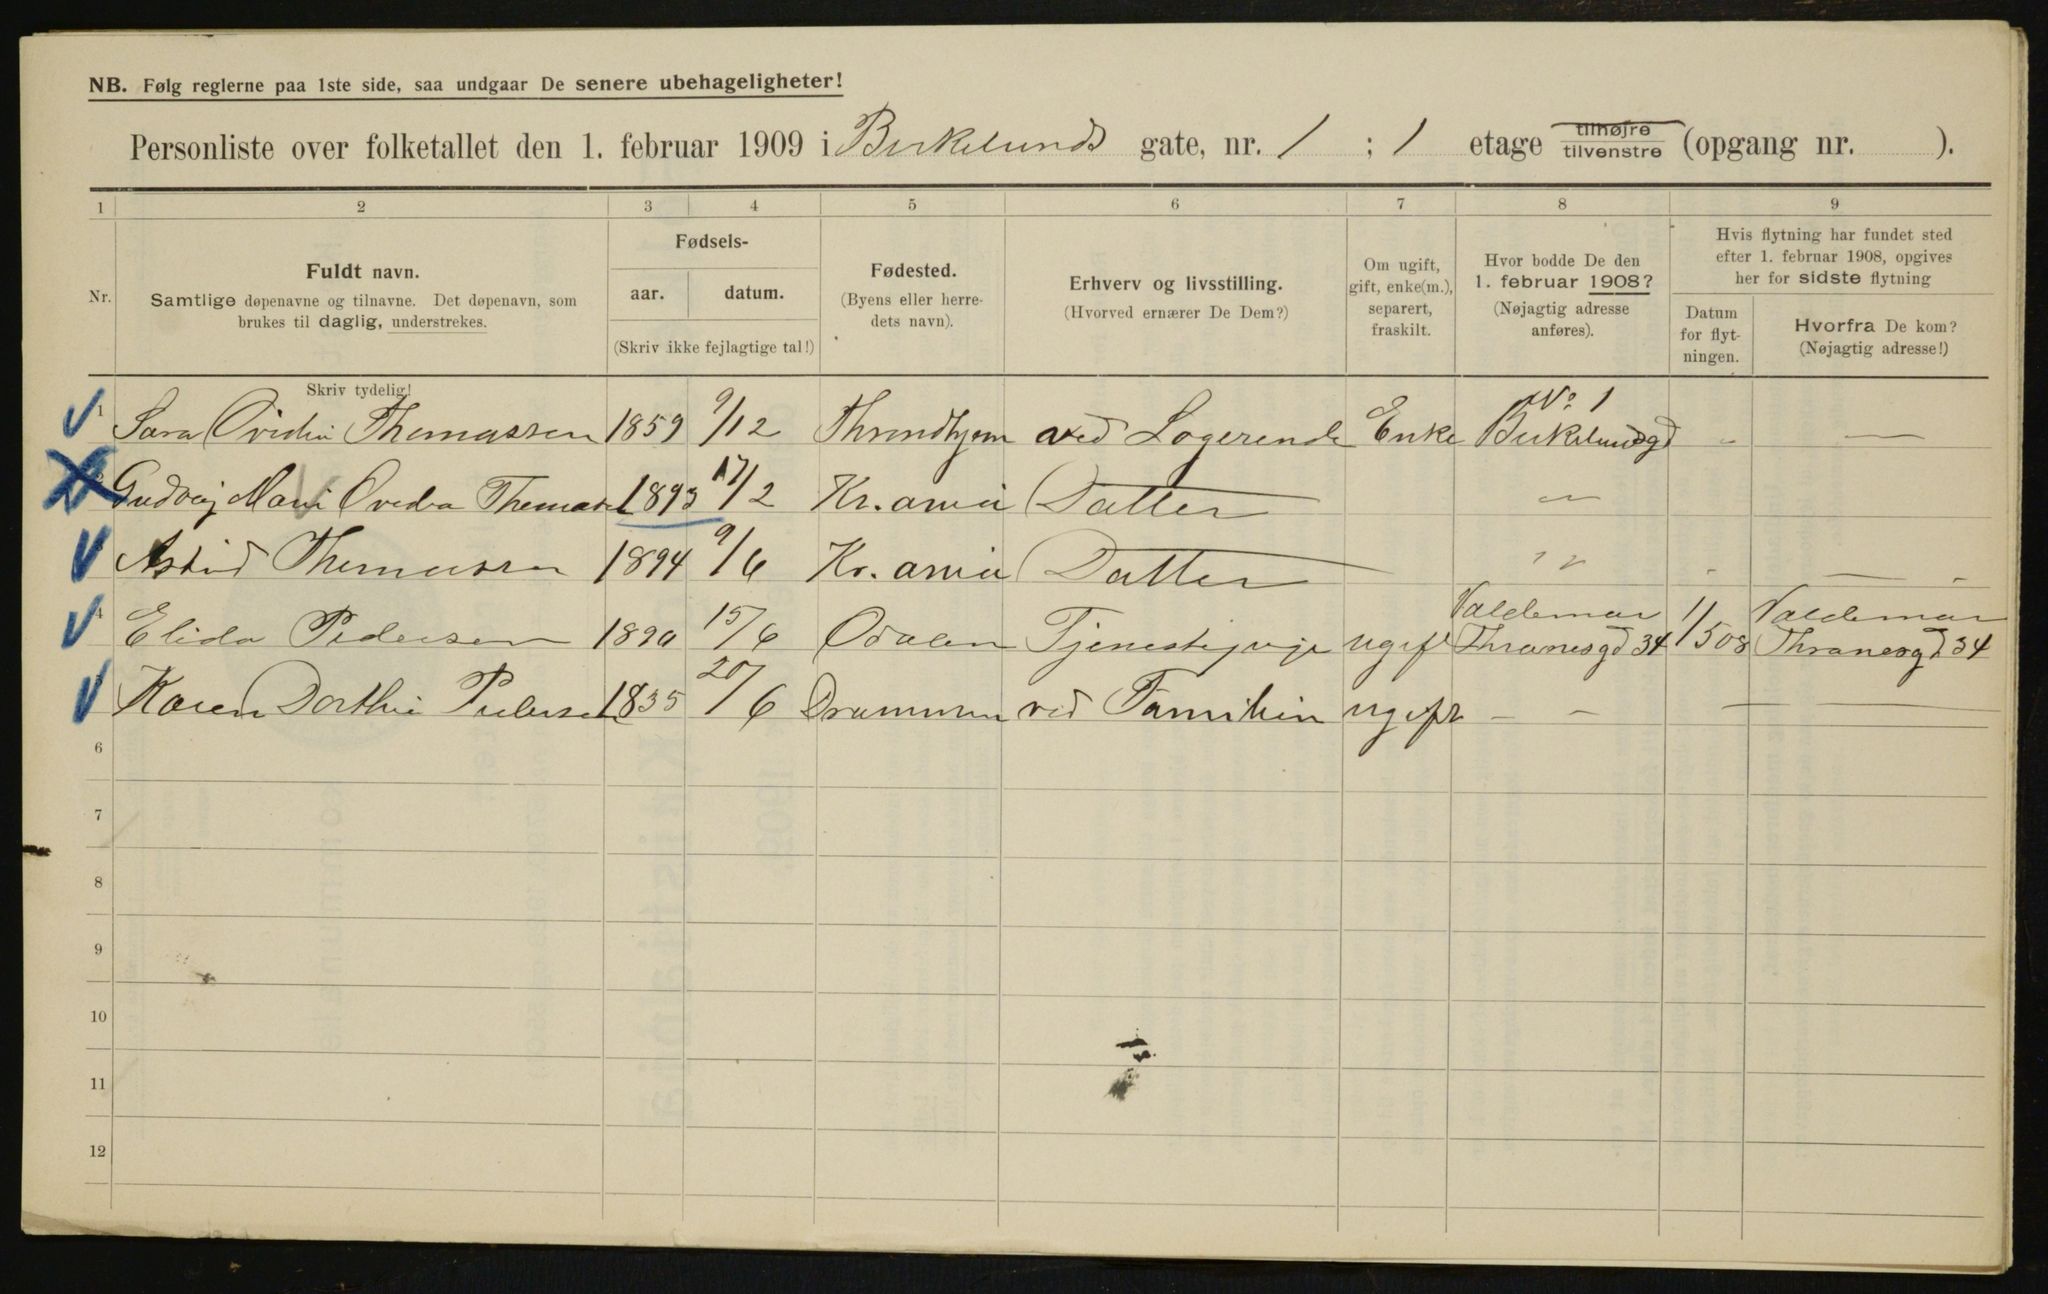 NB. Følg reglerne paa 1ste side, saa undgaar De senere ubehageligheter!
Personliste over folketallet den 1. februar 1909 i Birkelunds gate, nr. 1 ; 1 etage tilhøjre tilvenstre (opgang nr. ).
1 2 3 4 5 6 7 8 9
Nr.
Fuldt navn.
Samtlige døpenavne og tilnavne. Det døpenavn, som
brukes til daglig, understrekes.
Skriv tydelig!
Fødsels-
aar. datum.
(Skriv ikke fejlagtige tal!)
Fødested.
(Byens eller herre-
dets navn).
Erhverv og livsstilling.
(Hvorved ernærer De Dem?)
Om ugift,
gift, enke(m.),
separert,
fraskilt.
Hvor bodde De den
1. februar 1908?
(Nøjagtig adresse
anføres).
Hvis flytning har fundet sted
efter 1. februar 1908, opgives
her for sidste flytning
Datum
for flyt-
ningen.
Hvorfra De kom?
(Nøjagtig adresse!)
1 Sara Ovidia Thomassen 1859 9/12 Throndhjem ved Logerende Enke No 1 Birkelundsgd - —
Gudvig Marie Ovedia 1893 17/2 Kr.ania Datter - " -
Astrid Thomassen 1894 9/6 Kr.ania Datter " " - —
4 Elida Pedersen 1890 15/6 Odalen Tjenestepige ugift Valdemar Thranesgd 34 1/5 08 Valdemar Thranesgd 34
Karen Dorthie Pedersen 1835 20/6 Drammen ved Familien ugift - - — —
6
7
8
9
10
11
12